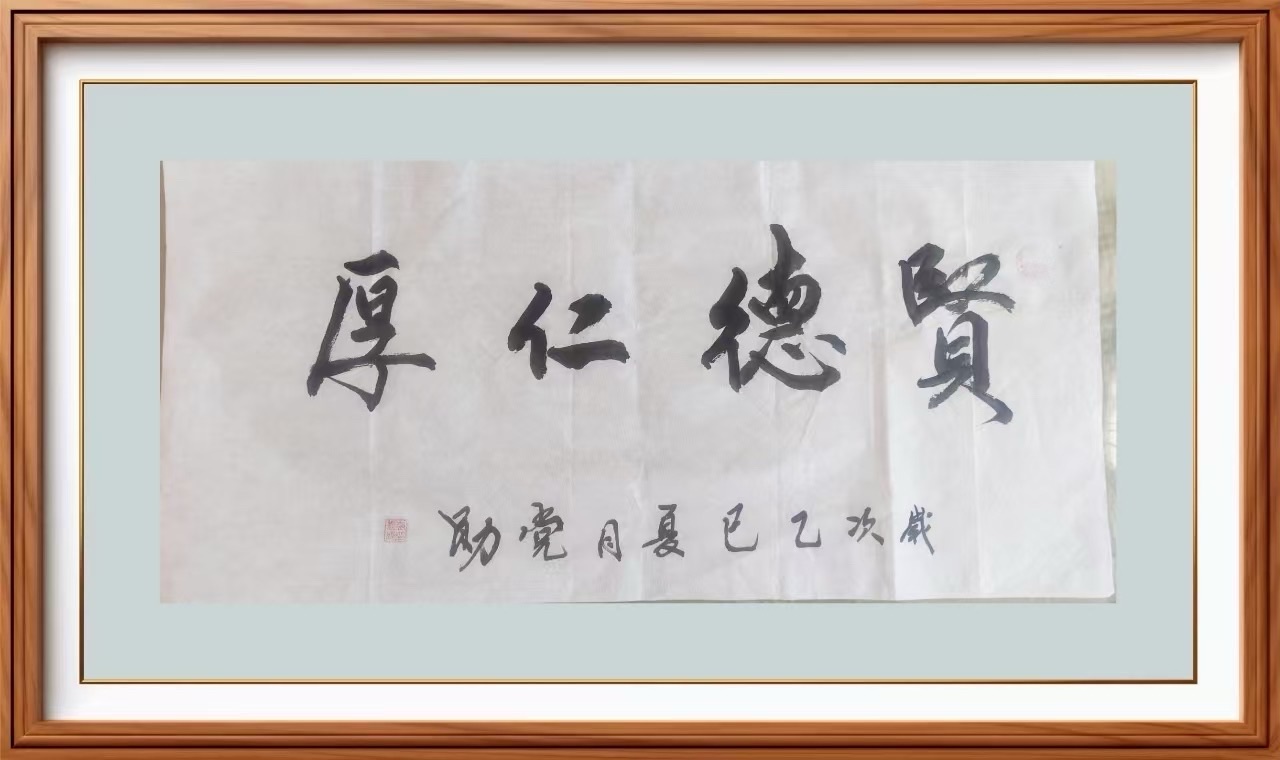 賢德仁厚
歲次乙巳夏月党勋